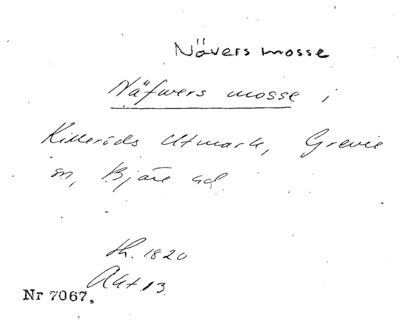 Nävers mosse
Näfwers mosse i
Killeröds Utmark, Grevie
sn, Bjäre hd
th. 1820
Akt 13.
Nr 7067.